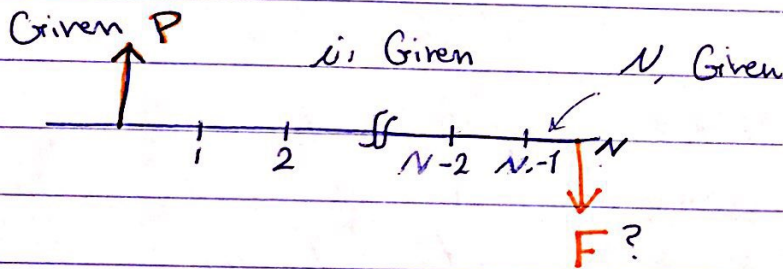 Given P
i, Given
N, Given
1 2 N-2 N-1 N
F ?